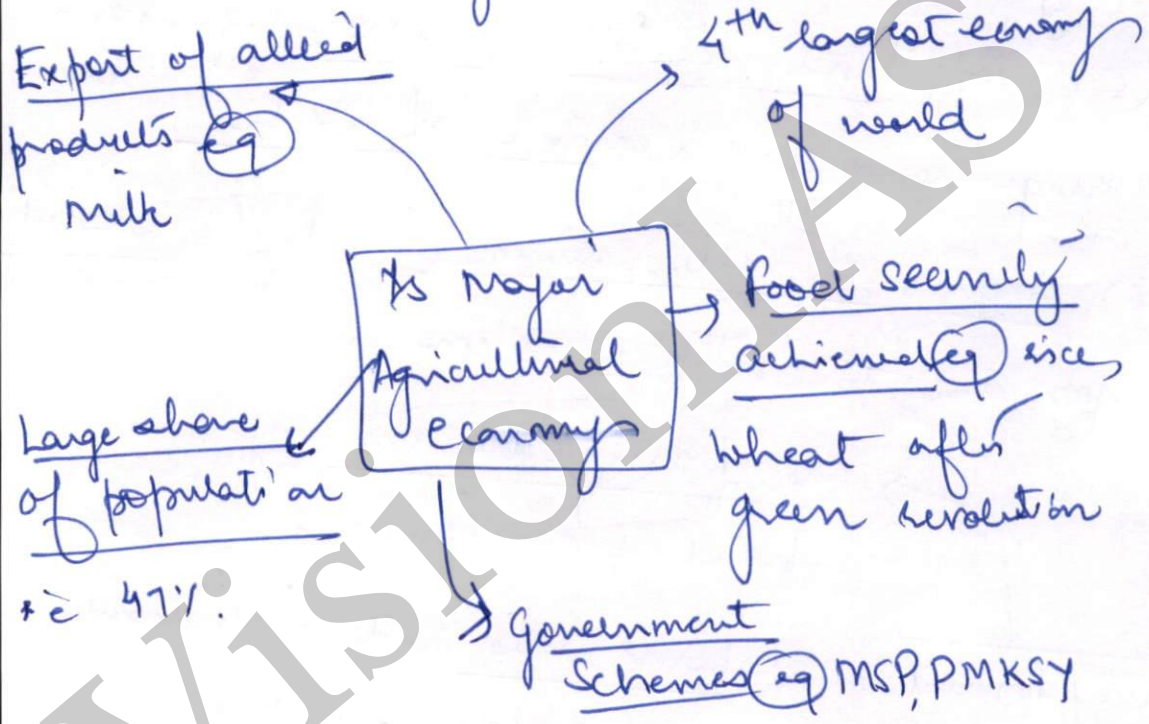 Export of allied
products eg
milk
4th largest economy
of world
Is Major
Agricultural
economy
Food security
achieved eg rice,
wheat after
green revolution
Large share
of population
47%.
Government
Schemes eg MSP, PMKSY
VisionIAS